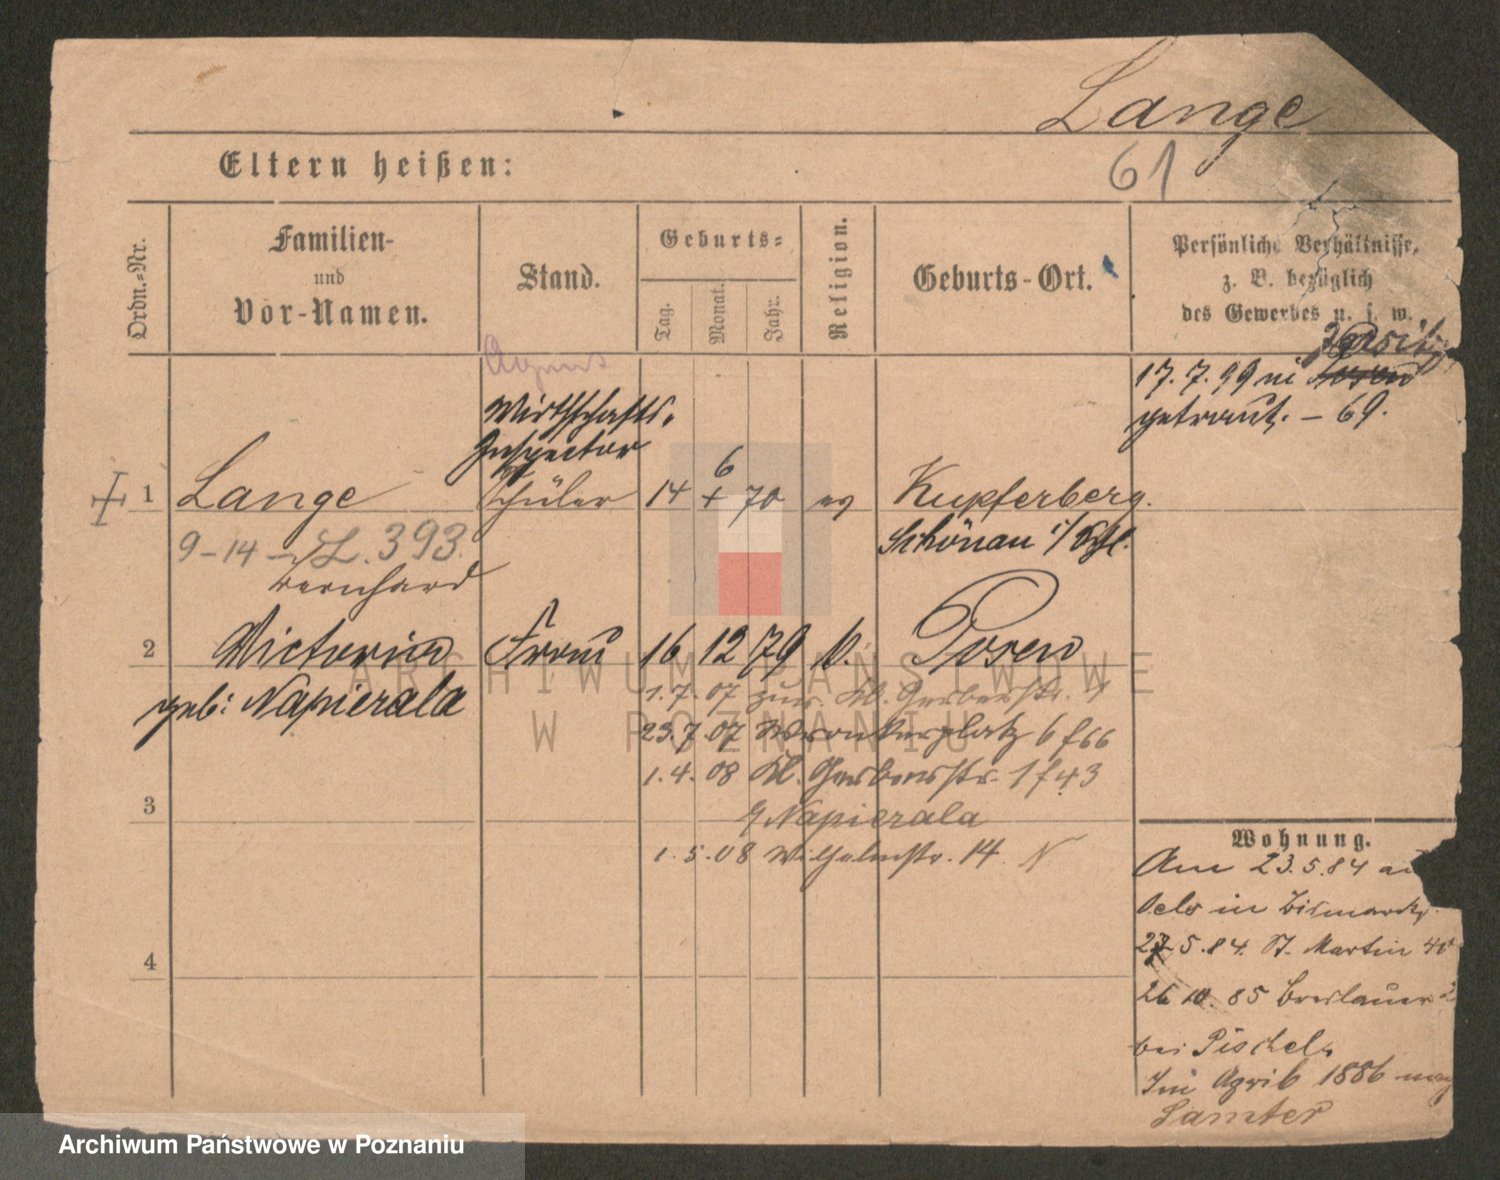 Lange
61
Eltern heißen:
Ordn.-Nr.
Familien-
und
Vor-Namen.
Stand.
Geburts-
Tag.
Monat.
Jahr.
Religion.
Geburts-Ort.
Persönliche Verhältnisse,
z. B. bezüglich
des Gewerbes u. s. w.
17.7.99 in Posen
getraut. – 69.
Wirthschafts-
Inspector
1 Lange Schüler 14 6 70 ev Kupferberg.
9-14 – L. 393. Schönau i/Schl.
Bernhard
2 Victoria Frau 16 12 79 k. Posen
geb: Napierala
1.7.07 zur. Kl. Gerberstr.
23.7.07 Wronkerplatz 6 f 66
1.4.08 Kl. Gerberstr. 1 f 43
Napierala
3
1.5.08 Wilhelmstr. 14 N
4
Wohnung.
Am 23.5.84 a
Oels in Bismarckst.
27.5.84. St. Martin
26.10.85 Breslauer
bei Pischel
Im April 1886 nach
Samter
ARCHIWUM PAŃSTWOWE
W POZNANIU
Archiwum Państwowe w Poznaniu